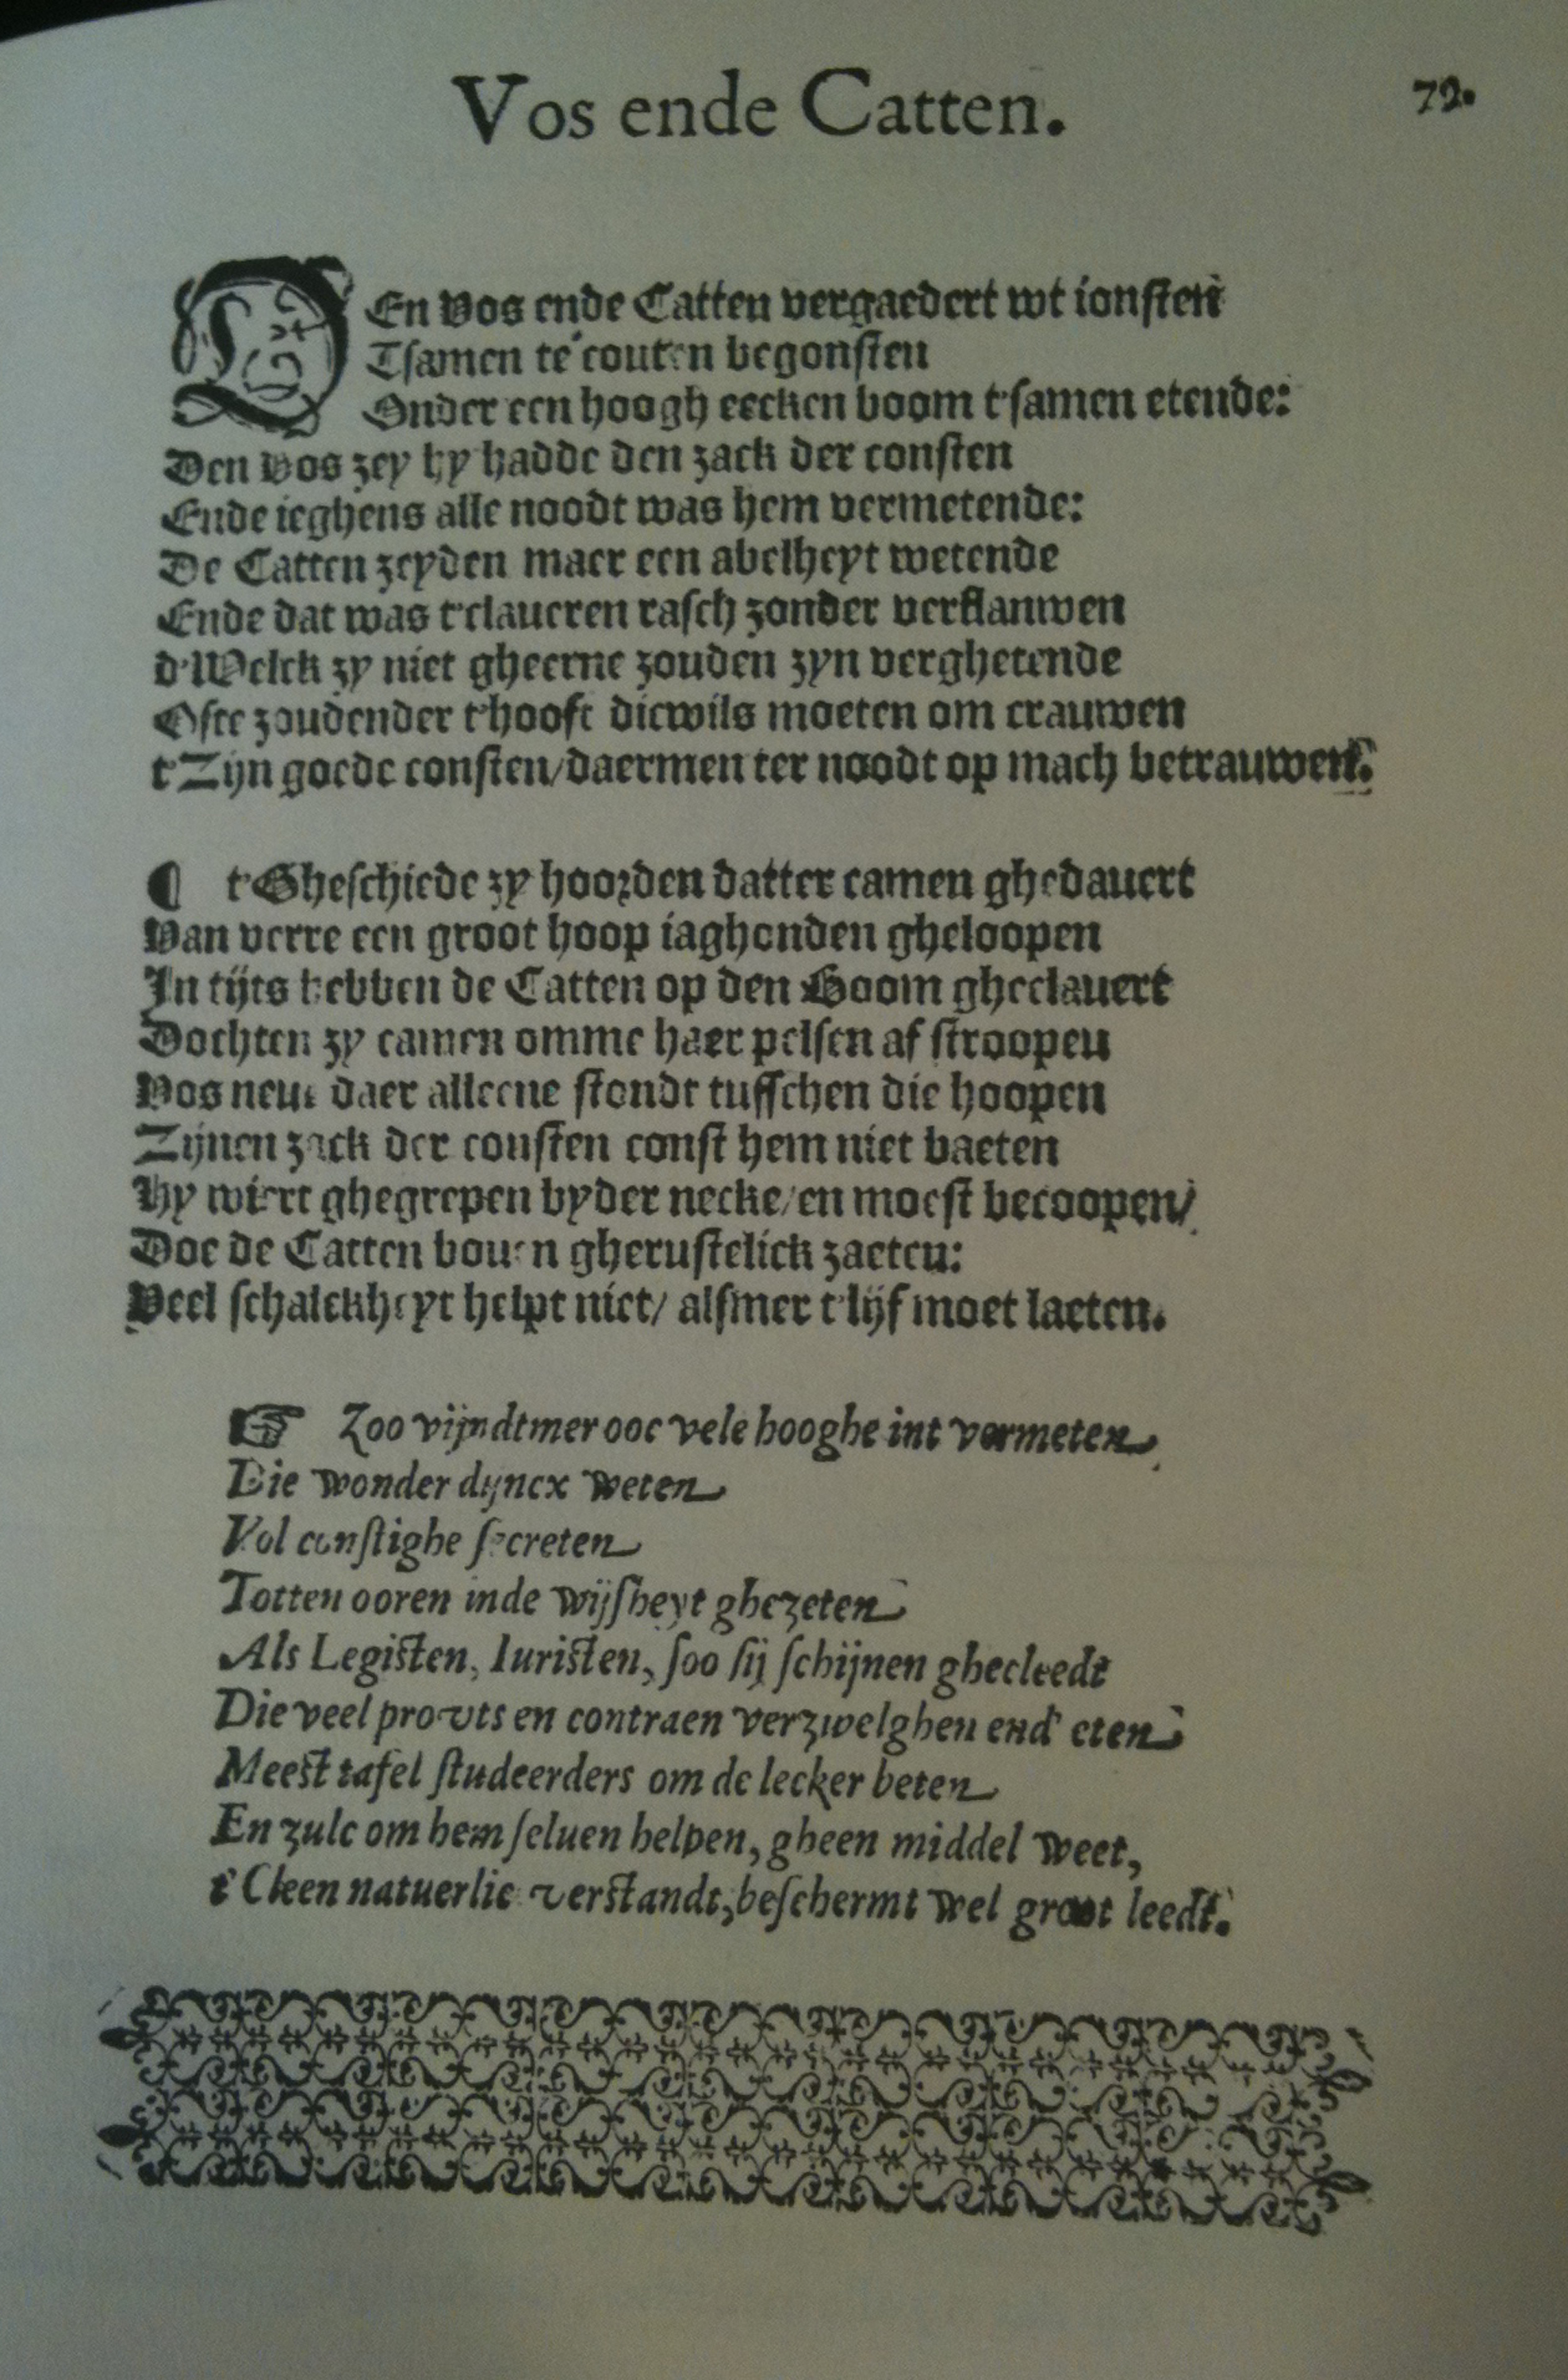 Vos ende Catten.
72.
DEn Vos ende Catten vergaedert wt ionsten
Tsamen te couten begonsten
Onder een hoogh eecken boom t'samen etende:
Den Vos zey hy hadde den zack der consten
Ende ieghens alle noodt was hem vermetende:
De Catten zeyden maer een abelheyt wetende
Ende dat was t'claueren rasch zonder verflauwen
d'Welck zy niet gheerne zouden zyn verghetende
Ofte zoudender t'hooft dicwils moeten om crauwen
t'Zijn goede consten/daermen ter noodt op mach betrauwen.
¶ t'Gheschiede zy hoorden datter camen ghedauert
Van verre een groot hoop iaghonden gheloopen
In tijts hebben de Catten op den Boom gheclauert
Dochten zy camen omme haer pelsen af stroopen
Vos neue daer alleene stondt tusschen die hoopen
Zijnen zack der consten const hem niet baeten
Hy wiert ghegrepen byder necke/en moest becoopen/
Doe de Catten bouen gherustelick zaeten:
Veel schalckheyt helpt niet/ alsmer t'lijf moet laeten.
☞ Zoo vijndtmer ooc vele hooghe int vermeten
Die wonder dyncx weten
Vol constighe secreten
Totten ooren inde wijsheyt ghezeten
Als Legisten, Iuristen, soo sij schijnen ghecleedt
Die veel prouts en contraen verzwelghen end' eten
Meest tafel studeerders om de lecker beten
En zulc om hem seluen helpen, gheen middel weet,
t'Cleen natuerlic verstandt, beschermt wel groot leedt.